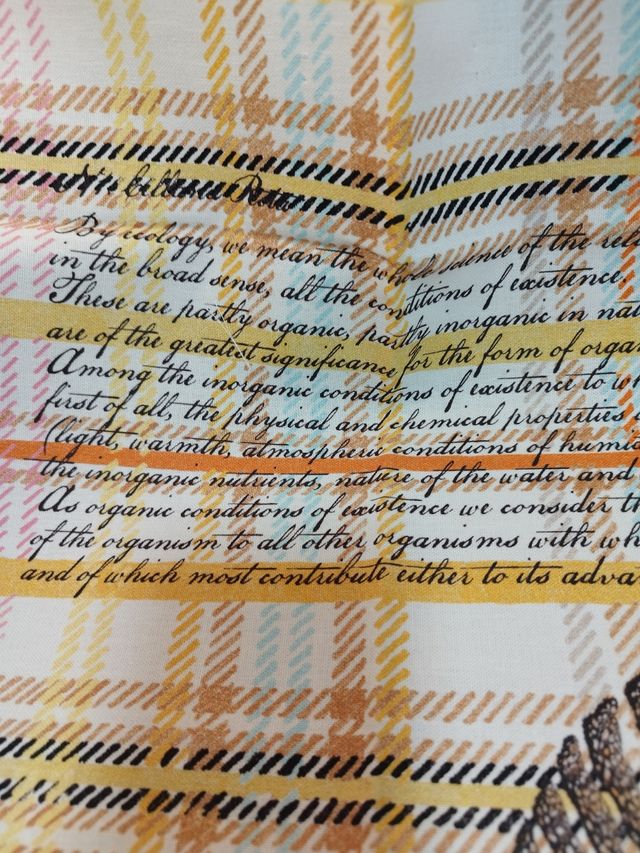 By ecology, we mean the whole science of the
in the broad sense, all the conditions of existence.
These are partly organic, partly inorganic in
are of the greatest significance for the form of
Among the inorganic conditions of existence to
first of all, the physical and chemical properties
(light, warmth, atmospheric conditions of
the inorganic nutrients, nature of the water and
As organic conditions of existence we consider
of the organism to all other organisms with
and of which most contribute either to its